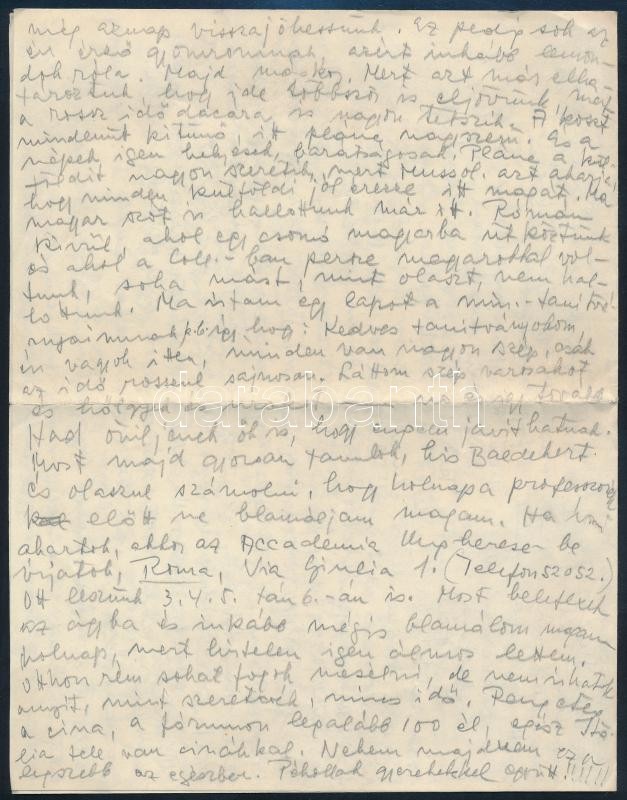 még aznap visszajöhessünk. Ez pedig sok az
én gyomromnak, azért inkább lemon-
dok róla. Majd máskor. Mert azt már elha-
tároztuk, hogy ide többször is eljövünk, mert
a rossz idő dacára is nagyon tetszik. A koszt
mindenütt kitünő, itt pláne nagyszerű. És a
népek igen helyesek, barátságosak. Pláne a kül-
földit nagyon szeretik, mert Mussol. azt akarja,
hogy minden külföldi jól érezze itt magát. Ma
magyar szót is hallottunk már itt. Rómán
kívül, ahol egy csomó magyarba ütköztünk
és ahol a Coll.-ban persze magyarokkal vol-
tunk, soha mást, mint olaszt, nem hal-
lottunk. Ma írtam egy lapot a min.-tanítvá-
nyaimnak p.b. így hogy: Kedves tanítványokom,
én vagyok itten, minden van nagyon szép, csak
az idő rosszul sajnosan. Láttam szép városakot
és és így tovább.
Had örüljenek ők is, hogy engem javíthatnak.
Most majd gyorsan tanulok, kis Baedekert
és olaszul számolni, hogy holnap a professzorok
előtt ne blamáljam magam. Ha írni
akartok, akkor az Accademia Ungherese-be
írjatok, Roma, Via Giulia 1. (Telefon 52052.)
Ott leszünk 3. 4. 5. tán 6.-án is. Most befekszek
az ágyba és inkább mégis blamálom magam
holnap, mert hirtelen igen álmos lettem.
Otthon rém sokat fogok mesélni, de nem írhatok
annyit, mint szeretnék, nincs idő. Rengeteg
a cica, a fórumon legalább 100 él, egész Itá-
lia tele van cicákkal. Nekem majdnem ez a
legszebb az egészben. Pókollak gyerekekkel együtt!!!!!!
darabanth